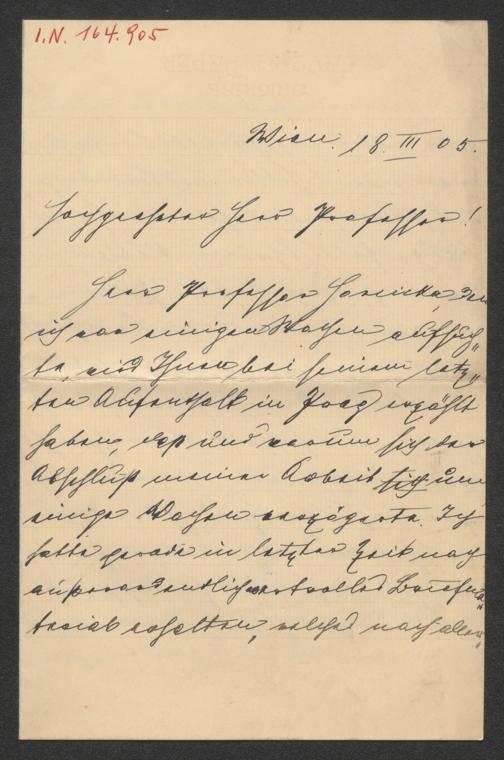 I.N. 164.905
Wien. 18. III 05.
Hochgeehrter Herr Professor!
Herr Professor Horcicka, den
ich vor einigen Wochen aufsuch„
te, wird Ihnen bei seinem letz„
ten Aufenthalt in Prag erzählt
haben, daß und warum sich der
Abschluß meiner Arbeit sich um
einige Wochen verzögerte. Ich
hatte gerade in letzter Zeit noch
außerordentlich wertvolles Briefma„
terial erhalten, welches nach allen„